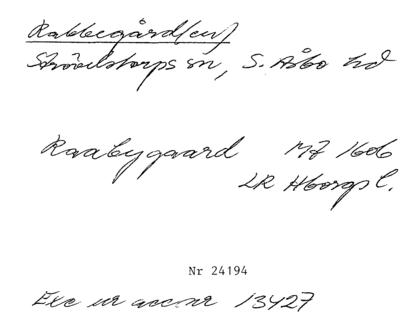 Rabbegård(en)
Strövelstorps sn, S. Åsbo hd
Raabygaard MJ 1606
LR Hborgs l.
Nr 24194
Exc ur acc.nr 13427